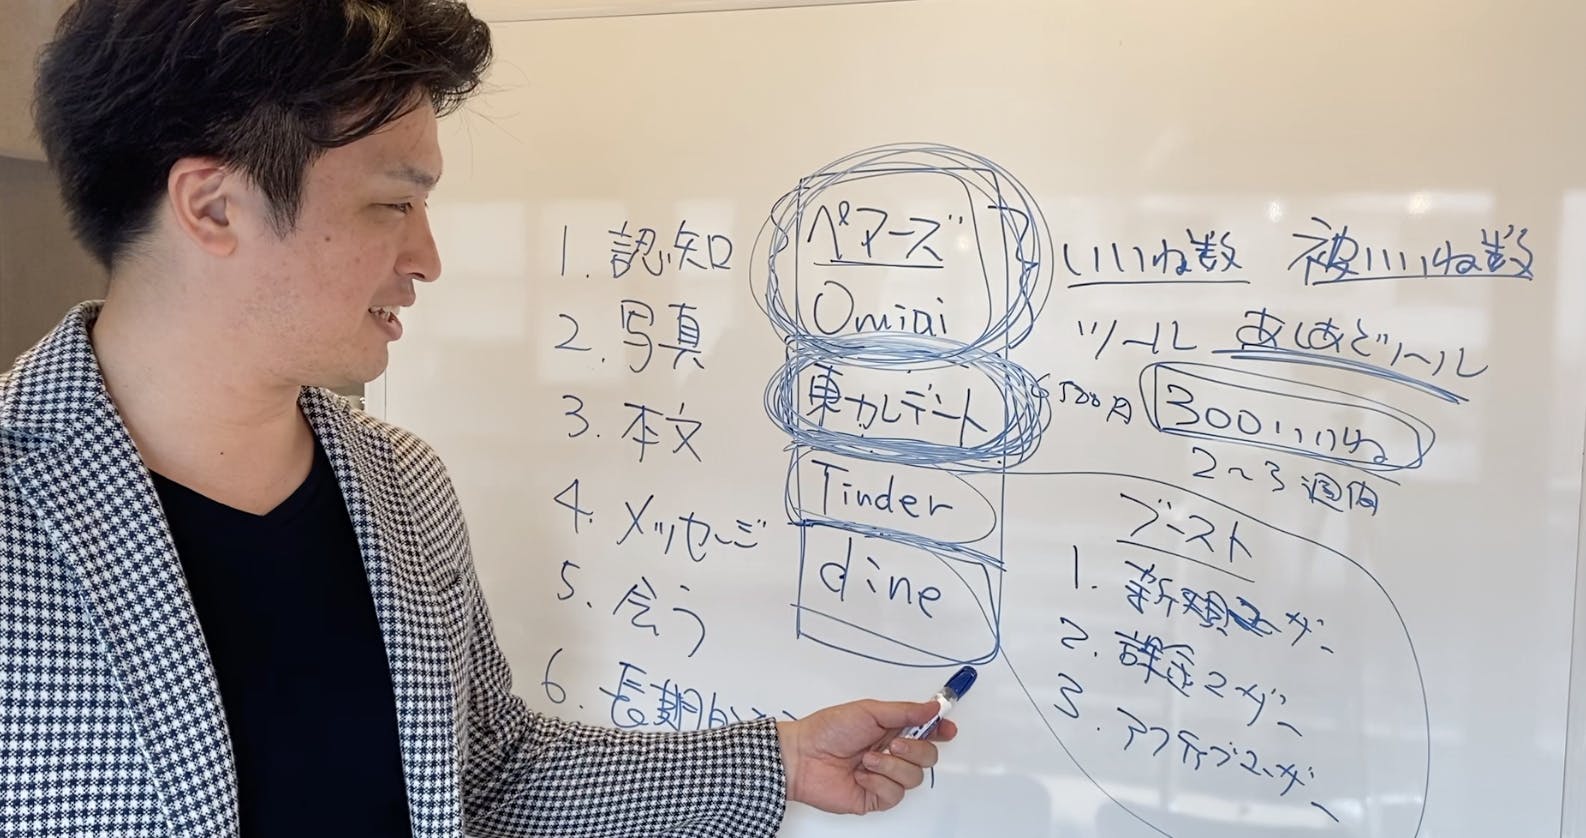 1. 認知
2. 写真
3. 本文
4. メッセージ
5. 会う
6. 長期
ペアーズ
Omiai
東カレデート
Tinder
dine
いいね数 被いいね数
ツール あしあとツール
300いいね
2〜3週間
ブースト
1. 新規ユーザー
2. 課金ユーザー
3. アクティブユーザー